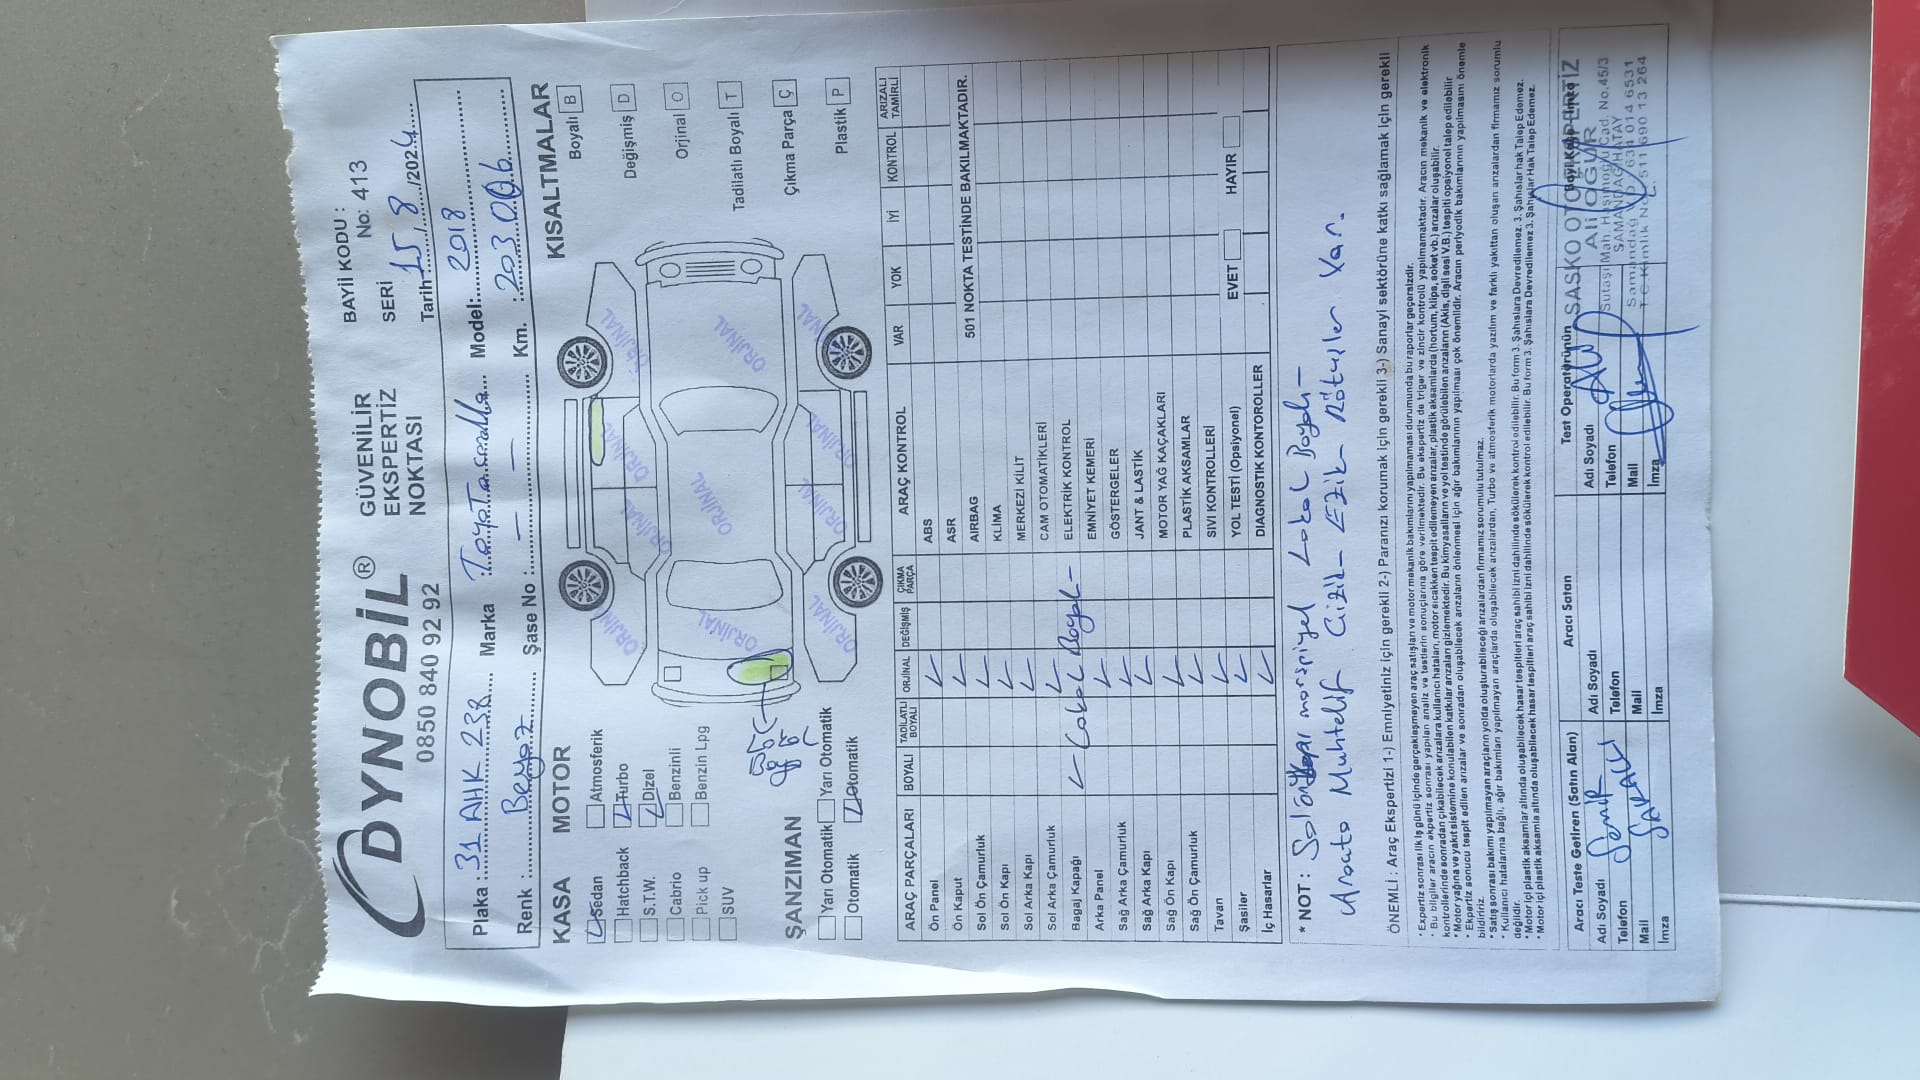 DYNOBİL®
0850 840 92 92
GÜVENİLİR
EKSPERTİZ
NOKTASI
BAYİİ KODU :
SERİ No: 413
Tarih 15/8/2024
Plaka : 31 AHK 238 Marka : Toyota Corolla Model: 2018
Renk : Beyaz Şase No : — — Km. : 203 006
KASA
Sedan
Hatchback
S.T.W.
Cabrio
Pick up
SUV
MOTOR
Atmosferik
Turbo
Dizel
Benzinli
Benzin Lpg
ŞANZIMAN
Yarı Otomatik Yarı Otomatik
Otomatik Otomatik
ORJİNAL
ORJİNAL
ORJİNAL
ORJİNAL
ORJİNAL
ORJİNAL
ORJİNAL
ORJİNAL
ORJİNAL
ORJİNAL
ORJİNAL
KISALTMALAR
Boyalı B
Değişmiş D
Orjinal O
Tadilatlı Boyalı T
Çıkma Parça Ç
Plastik P
ARAÇ PARÇALARI BOYALI TADİLATLI BOYALI ORJİNAL DEĞİŞMİŞ ÇIKMA PARÇA
Ön Panel
Ön Kaput
Sol Ön Çamurluk
Sol Ön Kapı
Sol Arka Kapı
Sol Arka Çamurluk
Bagaj Kapağı Lokal Boyalı
Arka Panel
Sağ Arka Çamurluk
Sağ Arka Kapı
Sağ Ön Kapı
Sağ Ön Çamurluk
Tavan
Şasiler
İç Hasarlar
ARAÇ KONTROL VAR YOK İYİ KONTROL ARIZALI TAMİRLİ
ABS
ASR
AIRBAG 501 NOKTA TESTİNDE BAKILMAKTADIR.
KLİMA
MERKEZİ KİLİT
CAM OTOMATİKLERİ
ELEKTRİK KONTROL
EMNİYET KEMERİ
GÖSTERGELER
JANT & LASTİK
MOTOR YAĞ KAÇAKLARI
PLASTİK AKSAMLAR
SIVI KONTROLLERİ
YOL TESTİ (Opsiyonel) EVET HAYIR
DIAGNOSTIK KONTOROLLER
* NOT : Sol marşpiyel Lokal Boyalı –
Araçta Muhtelif Çizik – Ezik – Rötuşlar Var.
ÖNEMLİ : Araç Ekspertizi 1-) Emniyetiniz için gerekli 2-) Paranızı korumak için gerekli 3-) Sanayi sektörüne katkı sağlamak için gerekli
* Expertiz sonrası ilk iş günü içinde gerçekleşmeyen araç satışları ve motor mekanik bakımlarını yapılmaması durumunda bu raporlar geçersizdir.
* Bu bilgiler aracın expertiz sonrası yapılan analiz ve testlerin sonuçlarına göre verilmektedir. Bu ekspertiz de triger ve zincir kontrolü yapılmamaktadır. Aracın mekanik ve elektronik
kontrollerinde sonradan çıkabilecek arızalara kullanıcı hataları, motor sıcakken tespit edilemeyen arızalar, plastik aksamlarda (hortum, klips, soket vb.) arızalar oluşabilir.
* Motor yağına ve yakıt sistemine konulabilen katkılar arızaları gizlemektedir. Bu kimyasalların ve yol testinde görülebilen arızaların (Akis, dişli sesi V.B.) tespiti opsiyonel talep edilebilir
* Ekspertiz sonucu tespit edilen arızalar ve sonradan oluşabilecek arızaların önlenmesi için ağır bakımlarının yapılması çok önemlidir. Aracın periyodik bakımlarının yapılmasını önemle
bildiririz.
* Satış sonrası bakımı yapılmayan araçların yolda oluşturabileceği arızalardan firmamız sorumlu tutulmaz.
* Kullanıcı hatalarına bağlı, ağır bakımları yapılmayan araçlarda oluşabilecek arızalardan, Turbo ve atmosferik motorlarda yazılım ve farklı yakıttan oluşan arızalardan firmamız sorumlu
değildir.
* Motor içi plastik aksamlar altında oluşabilecek hasar tespitleri araç sahibi izni dahilinde sökülerek kontrol edilebilir. Bu form 3. Şahıslara Devredilemez. 3. Şahıslar hak Talep Edemez.
* Motor içi plastik aksamla altında oluşabilecek hasar tespitleri araç sahibi izni dahilinde sökülerek kontrol edilebilir. Bu form 3. Şahıslara Devredilemez 3. Şahıslar Hak Talep Edemez.
Aracı Teste Getiren (Satın Alan)
Adı Soyadı
Telefon
Mail
İmza
Aracı Satan
Adı Soyadı
Telefon
Mail
İmza
Test Operatörünün
Adı Soyadı
Telefon
Mail
İmza
SASKO OTO EKSPERTİZ
Ali OĞUR
Sutaşı Mah. Cad. No.45/3
SAMANDAĞ/HATAY